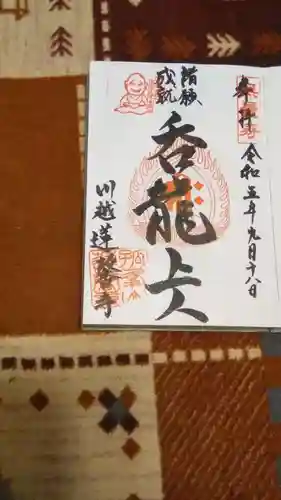 奉拝
令和五年九月十八日
諸願
成就
呑龍上人
川越蓮馨寺